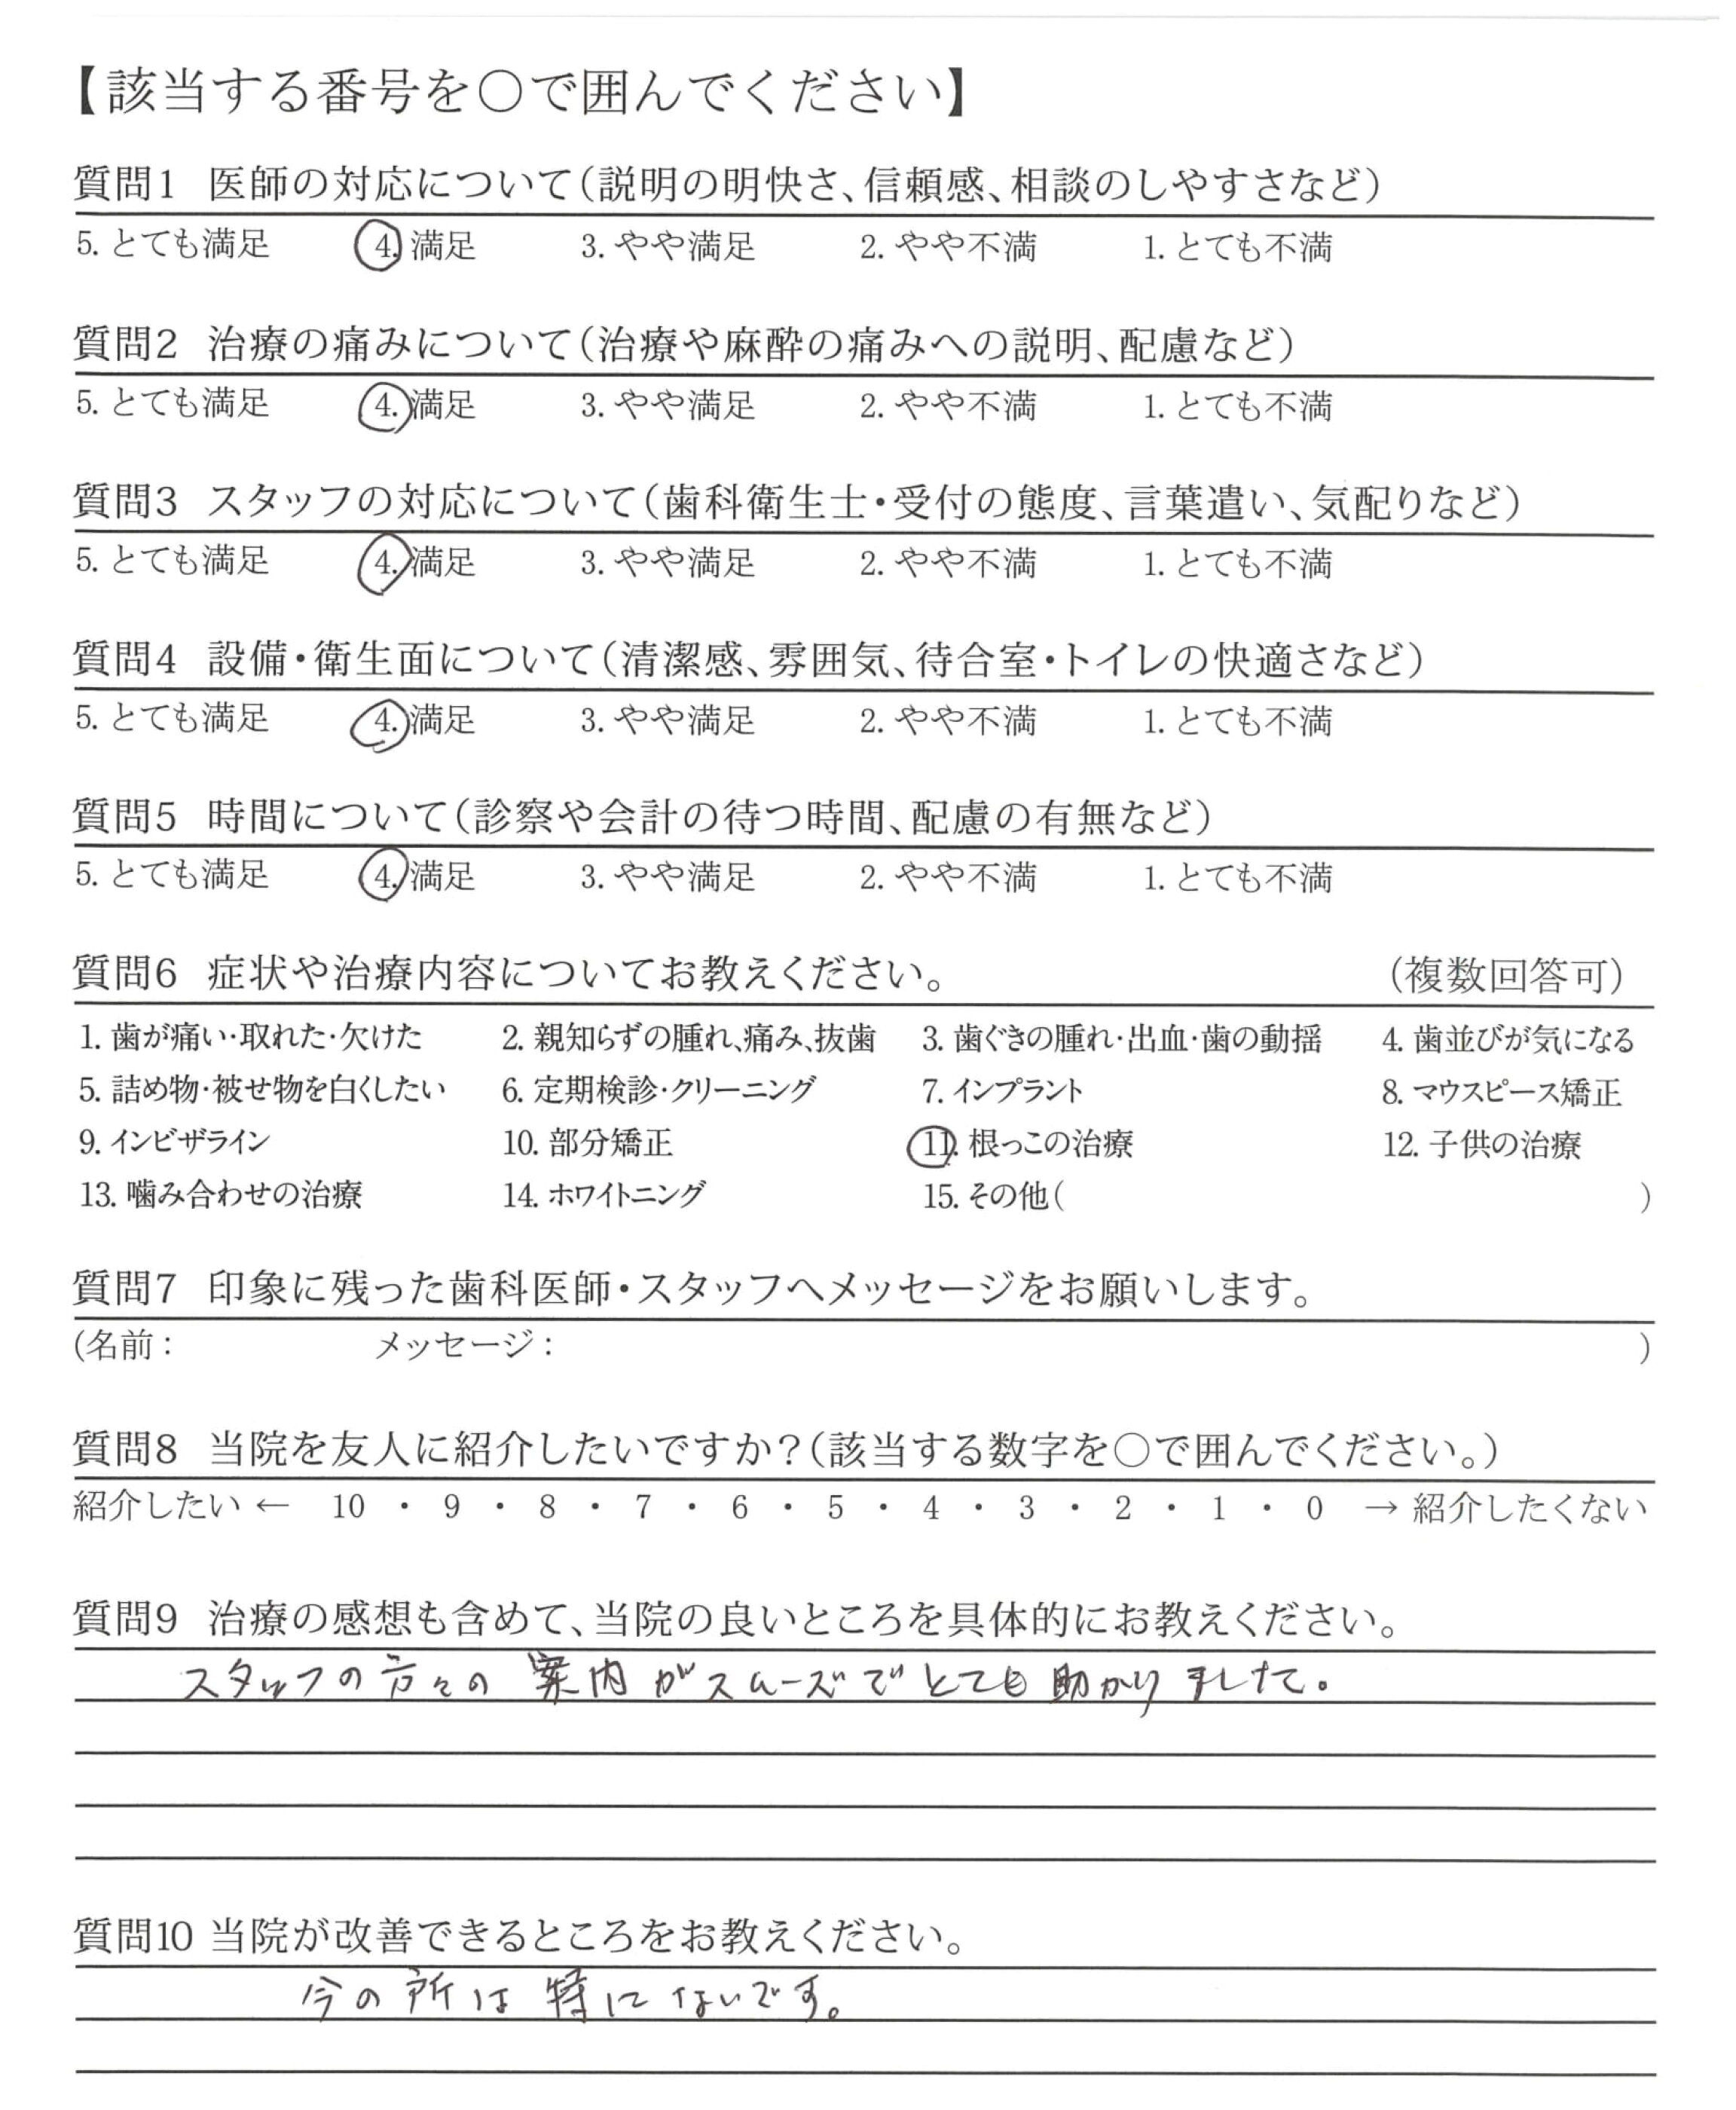 【該当する番号を○で囲んでください】
質問1 医師の対応について(説明の明快さ、信頼感、相談のしやすさなど)
5. とても満足 4. 満足 3. やや満足 2. やや不満 1. とても不満
質問2 治療の痛みについて(治療や麻酔の痛みへの説明、配慮など)
5. とても満足 4. 満足 3. やや満足 2. やや不満 1. とても不満
質問3 スタッフの対応について(歯科衛生士・受付の態度、言葉遣い、気配りなど)
5. とても満足 4. 満足 3. やや満足 2. やや不満 1. とても不満
質問4 設備・衛生面について(清潔感、雰囲気、待合室・トイレの快適さなど)
5. とても満足 4. 満足 3. やや満足 2. やや不満 1. とても不満
質問5 時間について(診察や会計の待つ時間、配慮の有無など)
5. とても満足 4. 満足 3. やや満足 2. やや不満 1. とても不満
質問6 症状や治療内容についてお教えください。 (複数回答可)
1. 歯が痛い・取れた・欠けた 2. 親知らずの腫れ、痛み、抜歯 3. 歯ぐきの腫れ・出血・歯の動揺 4. 歯並びが気になる
5. 詰め物・被せ物を白くしたい 6. 定期検診・クリーニング 7. インプラント 8. マウスピース矯正
9. インビザライン 10. 部分矯正 11. 根っこの治療 12. 子供の治療
13. 噛み合わせの治療 14. ホワイトニング 15. その他( )
質問7 印象に残った歯科医師・スタッフへメッセージをお願いします。
(名前: メッセージ: )
質問8 当院を友人に紹介したいですか?(該当する数字を○で囲んでください。)
紹介したい ← 10 ・ 9 ・ 8 ・ 7 ・ 6 ・ 5 ・ 4 ・ 3 ・ 2 ・ 1 ・ 0 → 紹介したくない
質問9 治療の感想も含めて、当院の良いところを具体的にお教えください。
スタッフの方々の案内がスムーズでとても助かりました。
質問10 当院が改善できるところをお教えください。
今の所は特にないです。